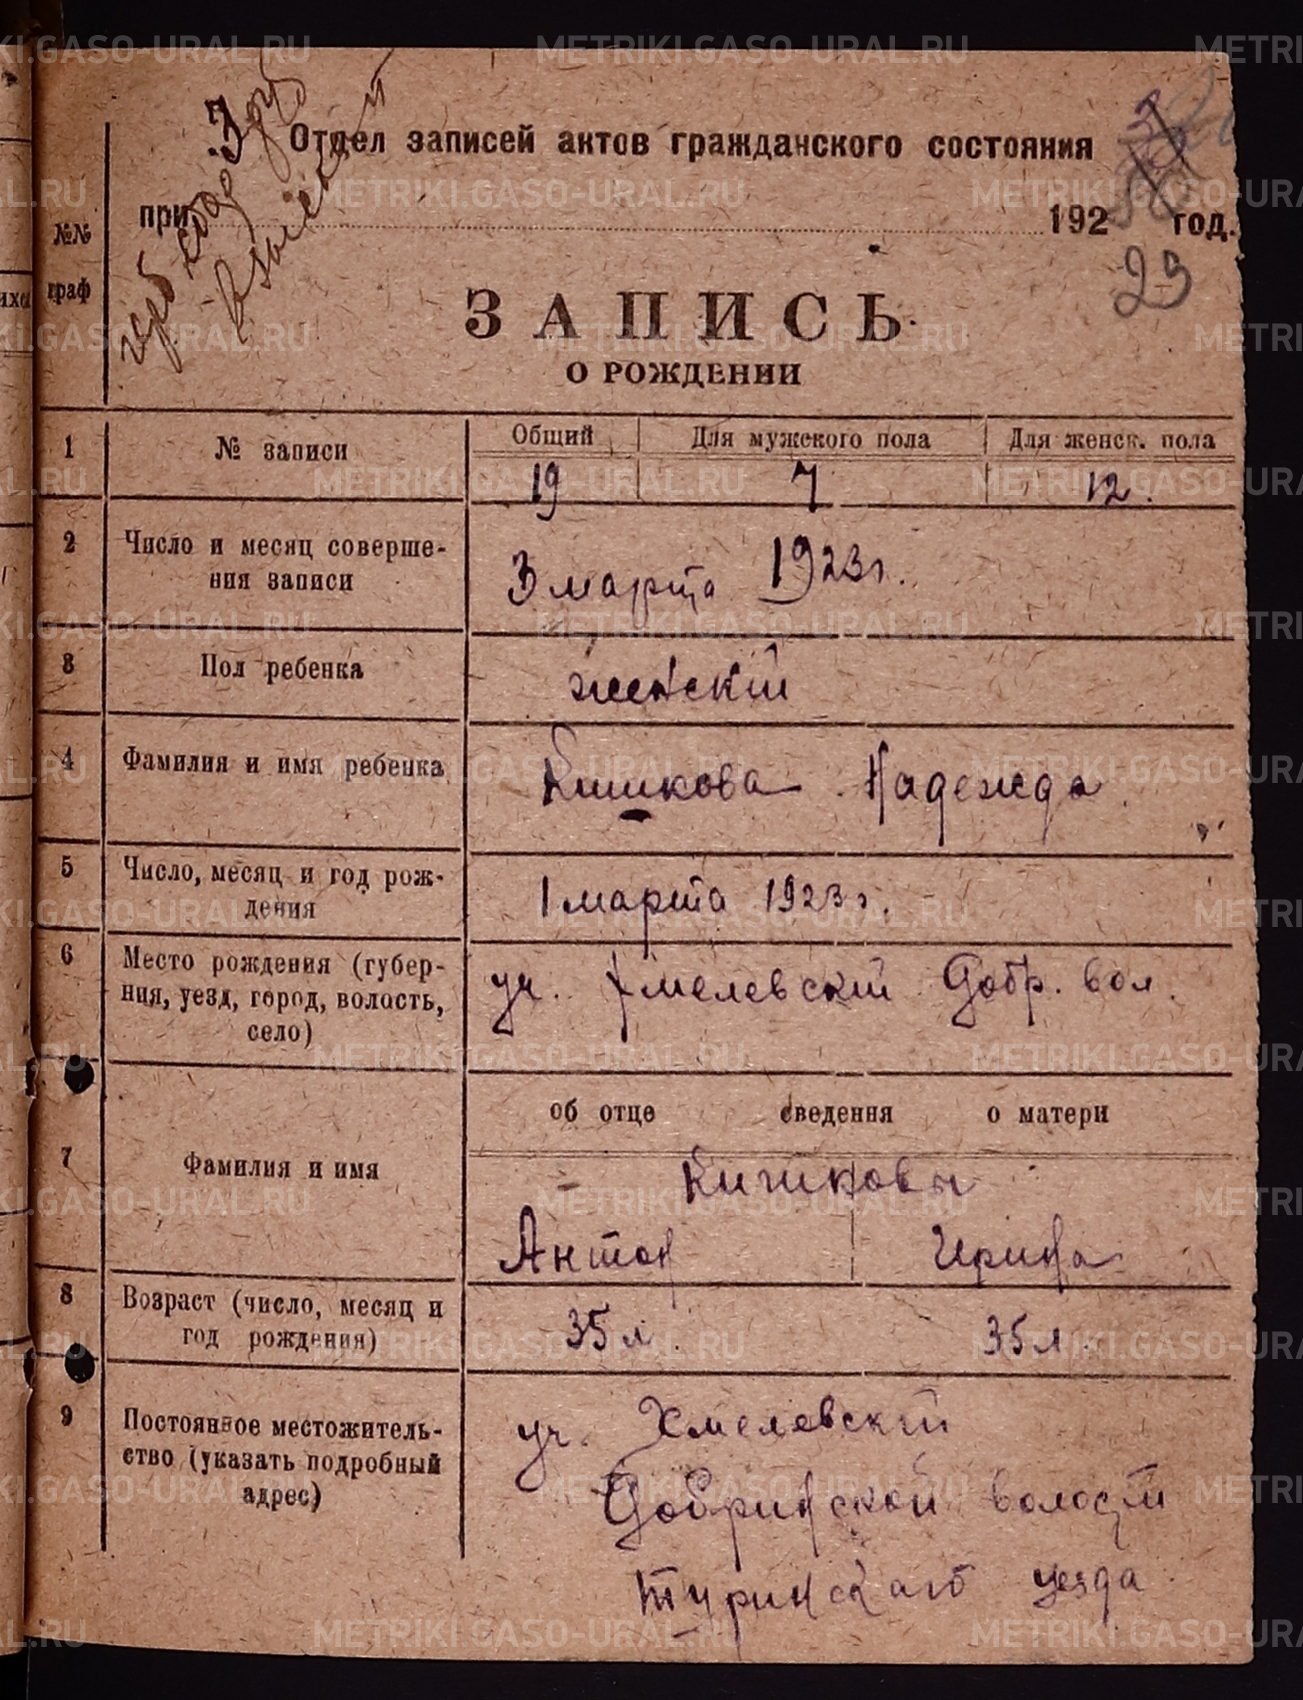 герб. сбор 3 руб
взыскан
Отдел записей актов гражданского состояния
при 192 год.
23
№№
граф
ЗАПИСЬ
О РОЖДЕНИИ
1 № записи Общий Для мужского пола Для женск. пола
19 7 12.
2 Число и месяц соверше-
ния записи
3 марта 1923 г.
3 Пол ребенка женский
4 Фамилия и имя ребенка Кишкова Надежда
5 Число, месяц и год рож-
дения
1 марта 1923 г.
6 Место рождения (губер-
ния, уезд, город, волость,
село)
уч. Хмелевский Добр. вол.
об отце сведения о матери
7 Фамилия и имя
Кишковы
Антон Ирина
8 Возраст (число, месяц и
год рождения)
35 л. 35 л.
9 Постоянное местожитель-
ство (указать подробный
адрес)
уч. Хмелевский
Добринской волости
Туринскаго уезда
METRIKI.GASO-URAL.RU